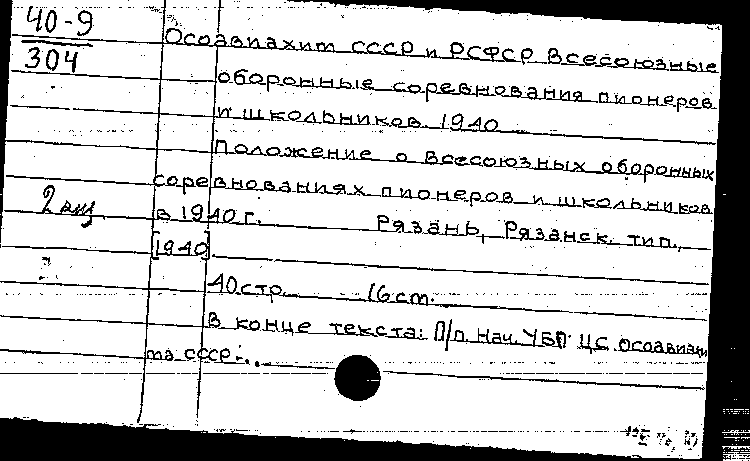 40-9
304
Осоавиахим СССР и РСФСР Всесоюзные
оборонные соревнования пионеров
и школьников. 1940
Положение о всесоюзных оборонных
соревнованиях пионеров и школьников
2 экз.
в 1940 г. Рязань, Рязанск. тип.,
[1940].
40 стр. 16 cm.
В конце текста: П/п. Нач. УБП ЦС Осоавиахи
ма СССР...